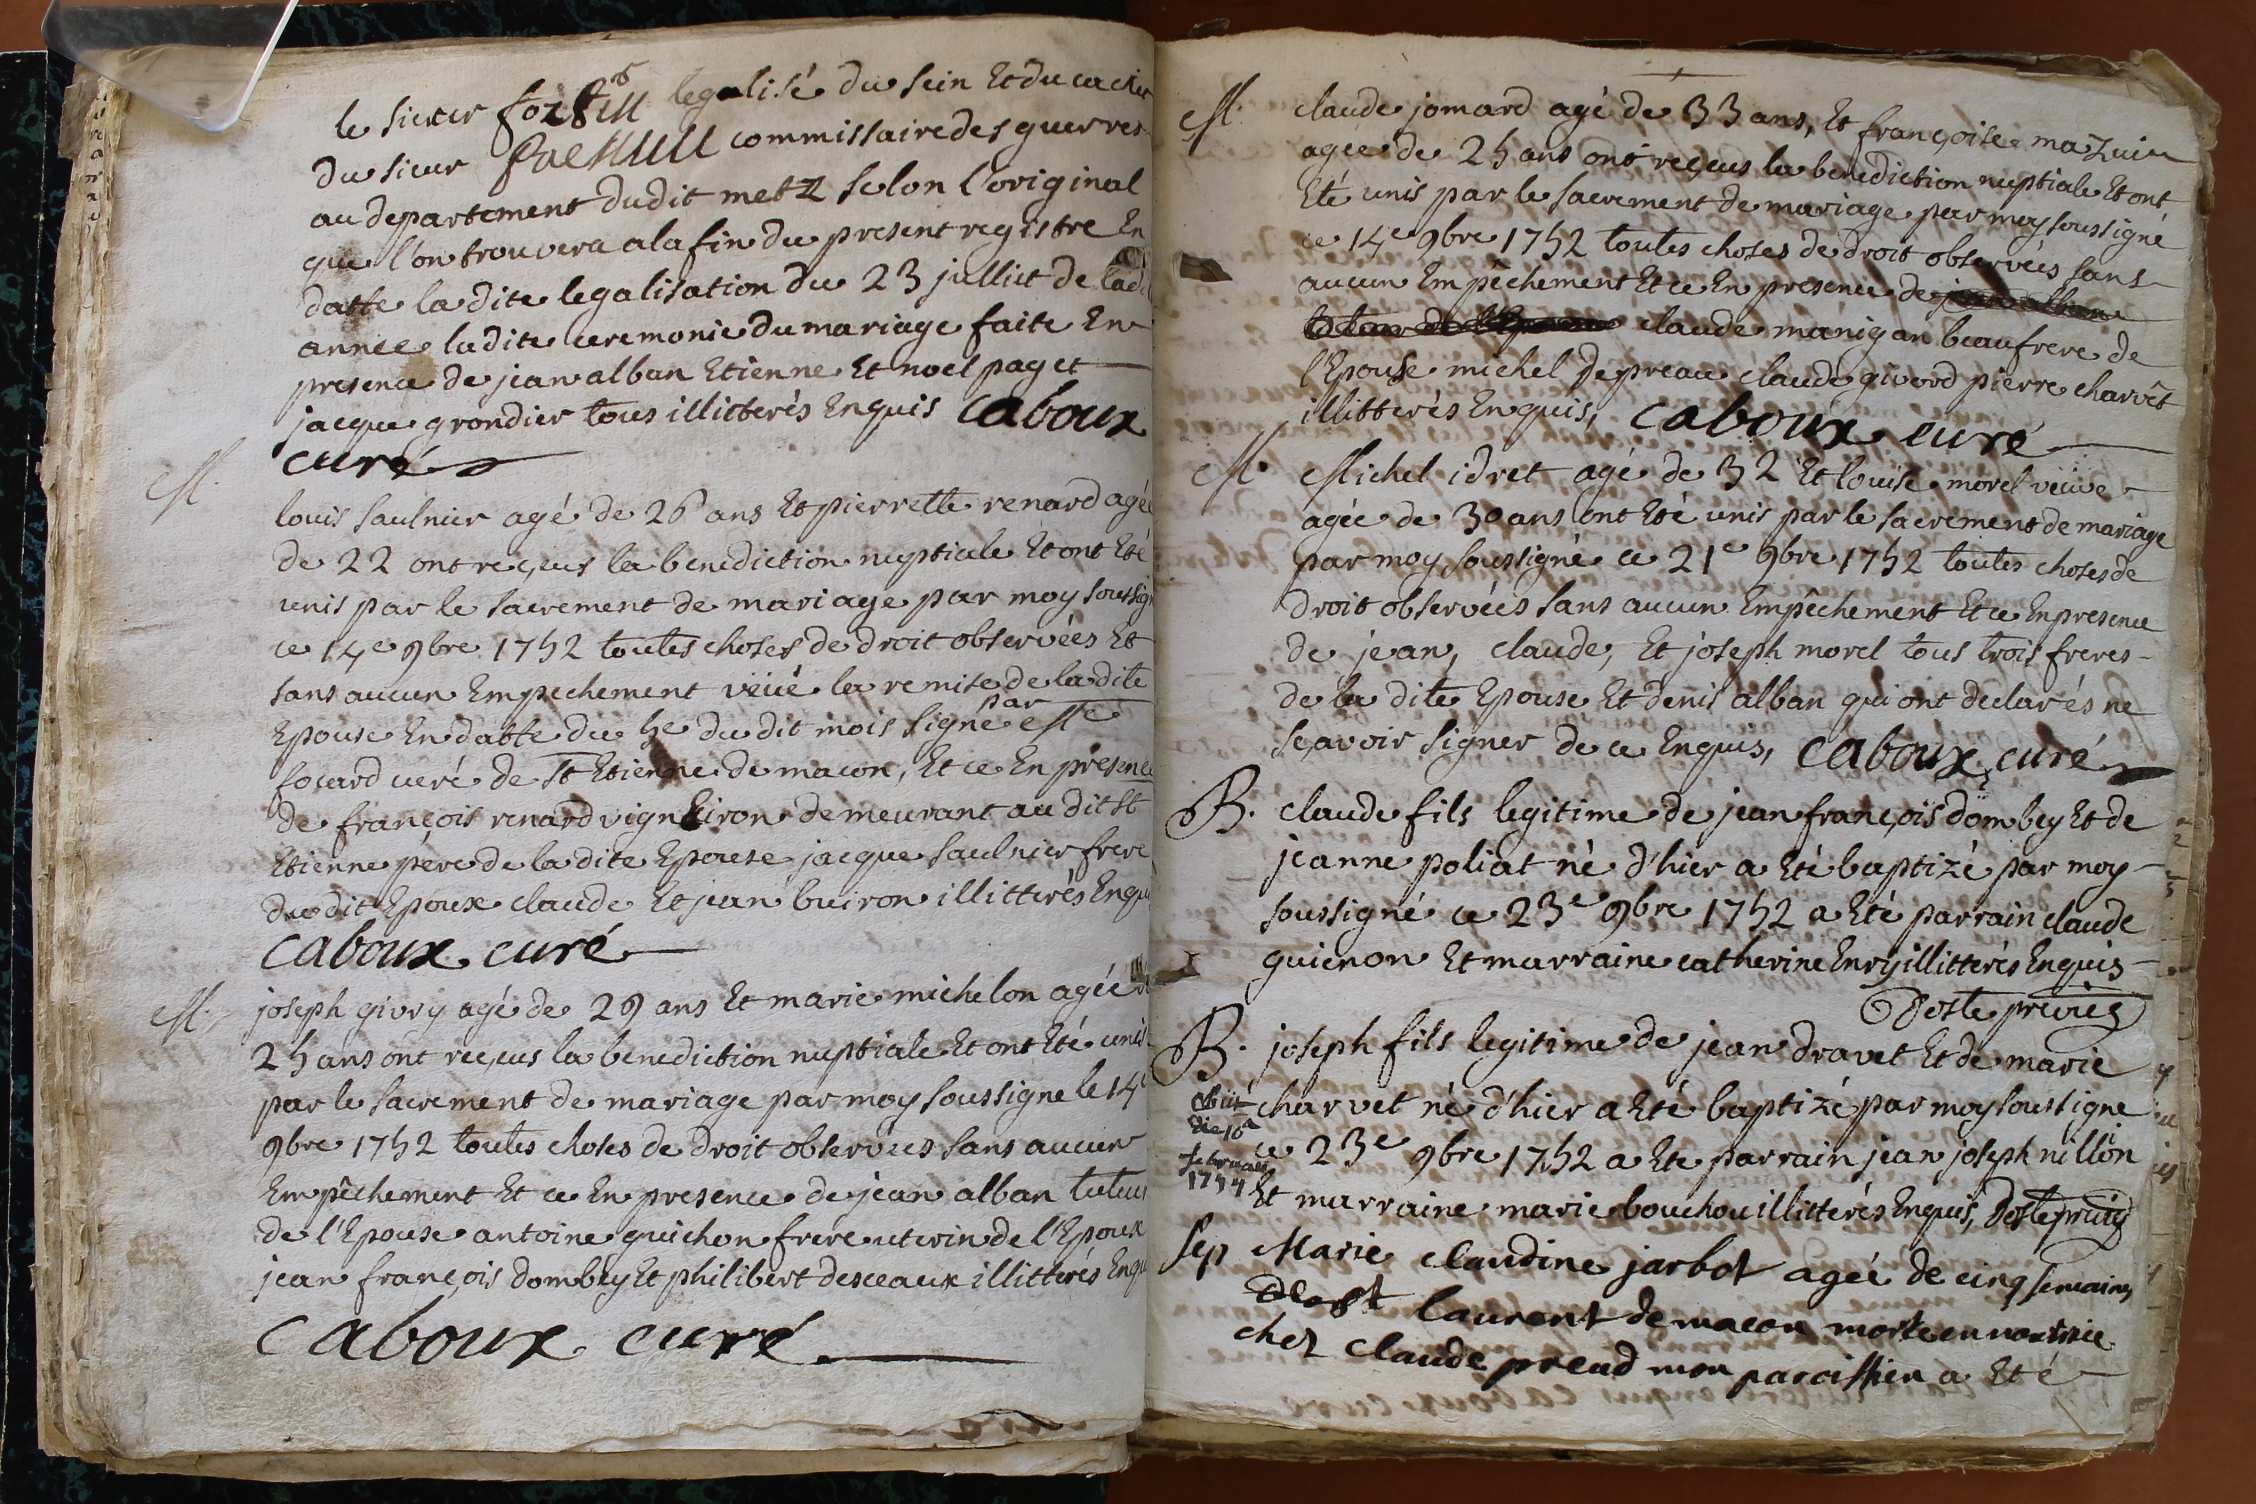 le sieur legalisé du sein Et du cachet
du sieur commissaire des guerres
au departement dudit metz selon l'original
que l'on trouvera a la fin du present registre En
datte la dite legalisation du 23 julliet de ladi
année ladite ceremonie du mariage faite En
presence de jean alban Etienne Et noel paget
jacque grondier tous illitterés Enquis caboux
curé
M. louis saulnier agé de 26 ans Et pierrette renard agée
de 22 ont reçeus la benediction nuptiale Et ont Eté
unis par le sacrement de mariage par moy soussign
ce 14e 9bre 1752 toutes choses de droit observées Et
sans aucun Empechement veüe la remise de la dite
Epouse En datte du 5e du dit mois signé par Me
focard curé de St Etienne de macon, Et ce En presence
de françois renard vigneron demeurant au dit St
Etienne pere de la dite Epouse jacque saulnier frere
du dit Epoux claude Et jean buiron illitterés Enqu
caboux curé
M. joseph givry agé de 29 ans Et marie michelon agée de
25 ans ont reçeus la benediction nuptiale Et ont Eté unis
par le sacrement de mariage par moy soussigné le 14e
9bre 1752 toutes choses de droit observées sans aucun
Empêchement Et ce En presence de jean alban tuteur
de l'Epouse antoine guichon frere uterin de l'Epoux
jean françois dombey Et philibert desceaux illitterés Enqu
caboux curé
M. claude jomard agé de 33 ans, Et françoise mazuir
agée de 25 ans ont reçeus la benediction nuptiale Et ont
Eté unis par le sacrement de mariage par moy soussigné
ce 14e 9bre 1752 toutes choses de droit observées sans
aucun Empêchement Et ce En presence de
claude manigan beaufrere de
l'Epouse michel depreau claude givord pierre charvêt
illitterés Enquis, caboux curé
M. Michel idret agé de 32 Et louise morel veuve
agée de 30 ans ont Eté unis par le sacrement de mariage
par moy soussigné ce 21e 9bre 1752 toutes choses de
droit observées sans aucun Empêchement Et ce En presence
de jean, claude, Et joseph morel tous trois freres
de la dite Epouse Et denis alban qui ont declarés ne
sçavoir signer de ce Enquis, caboux curé
B. claude fils legitime de jean françois dombey Et de
jeanne poliat né d'hier a Eté baptizé par moy
soussigné ce 23e 9bre 1752 a Eté parrain claude
guienon Et marraine catherine Enry illitterés Enquis
Desteprivies
B. joseph fils legitime de jean dravet Et de marie
charvet né d'hier a Eté baptizé par moy soussigné
obiit
die 16a
februarii
1754
ce 23e 9bre 1752 a Eté parrain jean joseph nillon
Et marraine marie bouchou illitterés Enquis,
Sep Marie claudine jarbot ageé de cinq semaines
laurent de macon morte en nourrice
chez claude preud mon paroissien a Eté